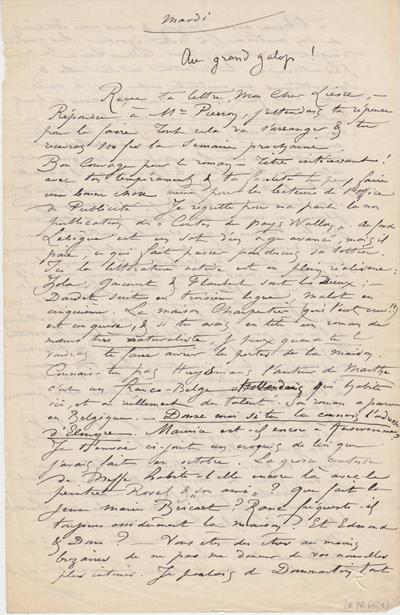 Mardi
Au grand galop !
Reçu ta lettre, Mon Cher Liesse, –
Répondre à Mme Pierson, j'attendais ta réponse
pour le faire. Tout cela va s'arranger & tu
recevras 100 fr la Semaine prochaine.
Bon Courage pour le roman – titre intéressant !
avec ton tempérament & ta tu peux faire
une bonne chose même pour les lecteurs de l'office
de Publicité. Je regrette pour ma part la non
publication des « Contes du pays Wallon ». Au fond
Lebègue est un sot d'un âge avancé, mais il
paie, ce qui fait passer par dessus sa sottise.
Ici la littérature active est en plein réalisme :
Zola, Goncourt & Flaubert sont les Dieux :
Daudet suit en troisième ligne, Malot en
cinquième. La maison Charpentier qui l'eut cru !!
est exquise, & si tu avais en tête un roman de
mœurs très naturaliste je peux quand tu le
voudras te faire ouvrir les portes de la maison.
Connais-tu pas Huysmans l'auteur de Marthe
c'est un franco-Belge Hollandais qui habite
ici, et a rellement du talent. Son roman a paru
en Belgique. Donne moi si tu la connais l'adresse
d'Elmyre. Maurice est-il encore à
Je t'envoie ci-joint un croquis de lui que
j'avais fait en octobre. La grosse
de habite-elle encore là avec le
peintre & « son ami » ? Que fait le
jeune marié ? fréquente-il
toujours assidument la maison ? Et Edmond
& Dom ? – Vous êtes des êtres au moins
bizarres de ne pas me donner de vos nouvelles
plus intimes. Je parlais de Dommartin tout